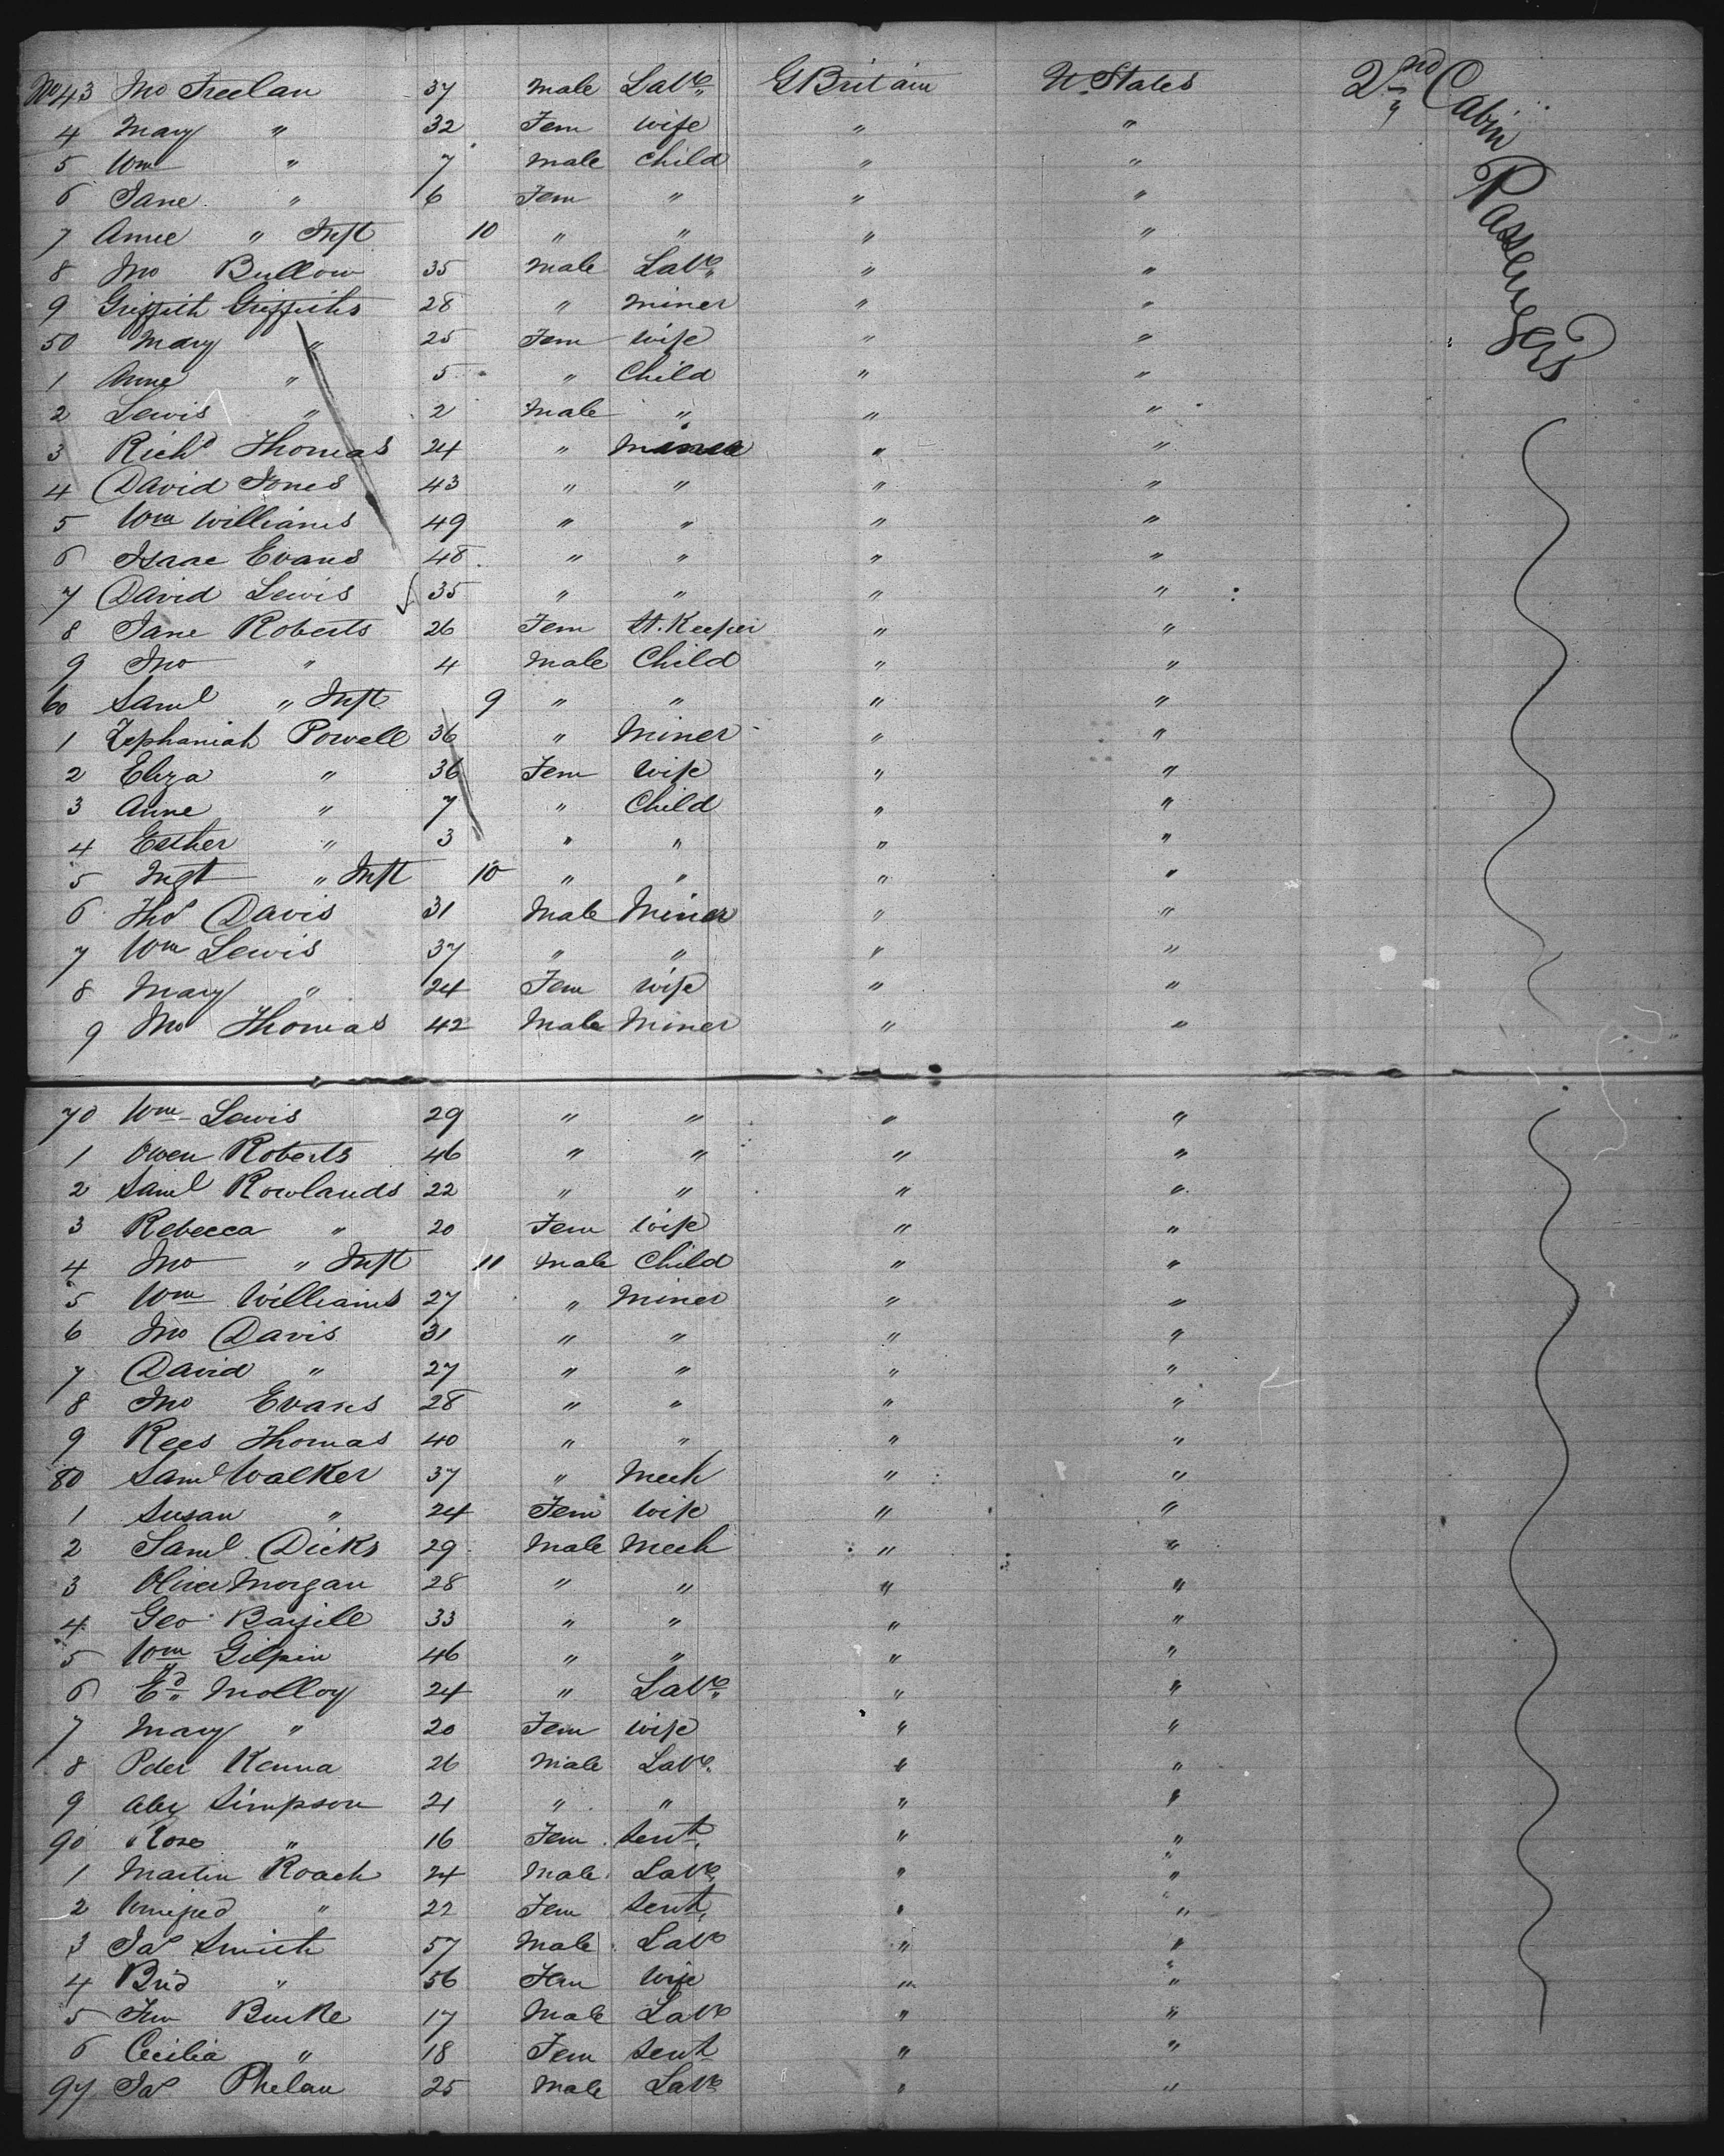 No 43 Jno Freelan 37 Male Labr G Britain U. States 2nd Cabin Passengers
4 Mary " 32 Fem Wife " "
5 Wm " 7 Male Child " "
6 Jane " 6 Fem " " "
7 Annie " Inft 10 " " " "
8 Jno Bullow 35 Male Labr " "
9 Griffith Griffiths 28 " Miner " "
50 Mary " 25 Fem Wife " "
1 Anne " 5 " Child " "
2 Lewis " 2 Male " " "
3 Richd Thomas 24 " Miner " "
4 David Jones 43 " " " "
5 Wm Williams 49 " " " "
6 Isaac Evans 48 " " " "
7 David Lewis 35 " " " "
8 Jane Roberts 26 Fem H. Keeper " "
9 Jno " 4 Male Child " "
60 Saml " Inft 9 " " " "
1 Zephaniah Powell 36 " Miner " "
2 Eliza " 36 Fem Wife " "
3 Anne " 7 " Child " "
4 Esther " 3 " " " "
5 Mgt " Inft 10 " " " "
6 Thos Davis 31 Male Miner " "
7 Wm Lewis 37 " " " "
8 Mary " 24 Fem Wife " "
9 Jno Thomas 42 Male Miner " "
70 Wm Lewis 29 " " " "
1 Owen Roberts 46 " " " "
2 Saml Rowlands 22 " " " "
3 Rebecca " 20 Fem Wife " "
4 Jno " Inft 11 Male Child " "
5 Wm Williams 27 " Miner " "
6 Jno Davis 31 " " " "
7 David " 27 " " " "
8 Jno Evans 28 " " " "
9 Rees Thomas 40 " " " "
80 Saml Walker 37 " Mech " "
1 Susan " 24 Fem Wife " "
2 Saml Dicks 29 Male Mech " "
3 Oliver Morgan 28 " " " "
4 Geo 33 " " " "
5 Wm Gilpin 46 " " " "
6 Ed Molloy 24 " Labr " "
7 Mary " 20 Fem Wife " "
8 Peter Kenna 26 Male Labr " "
9 Alex Simpson 21 " " " "
90 Rose " 16 Fem Servt " "
1 Martin Roach 24 Male Labr " "
2 Winifred " 22 Fem Servt " "
3 Jas Smith 57 Male Labr " "
4 Brid " 56 Fem Wife " "
5 Burke 17 Male Labr " "
6 Cecilia " 18 Fem Servt " "
97 Jas Phelan 25 Male Labr " "